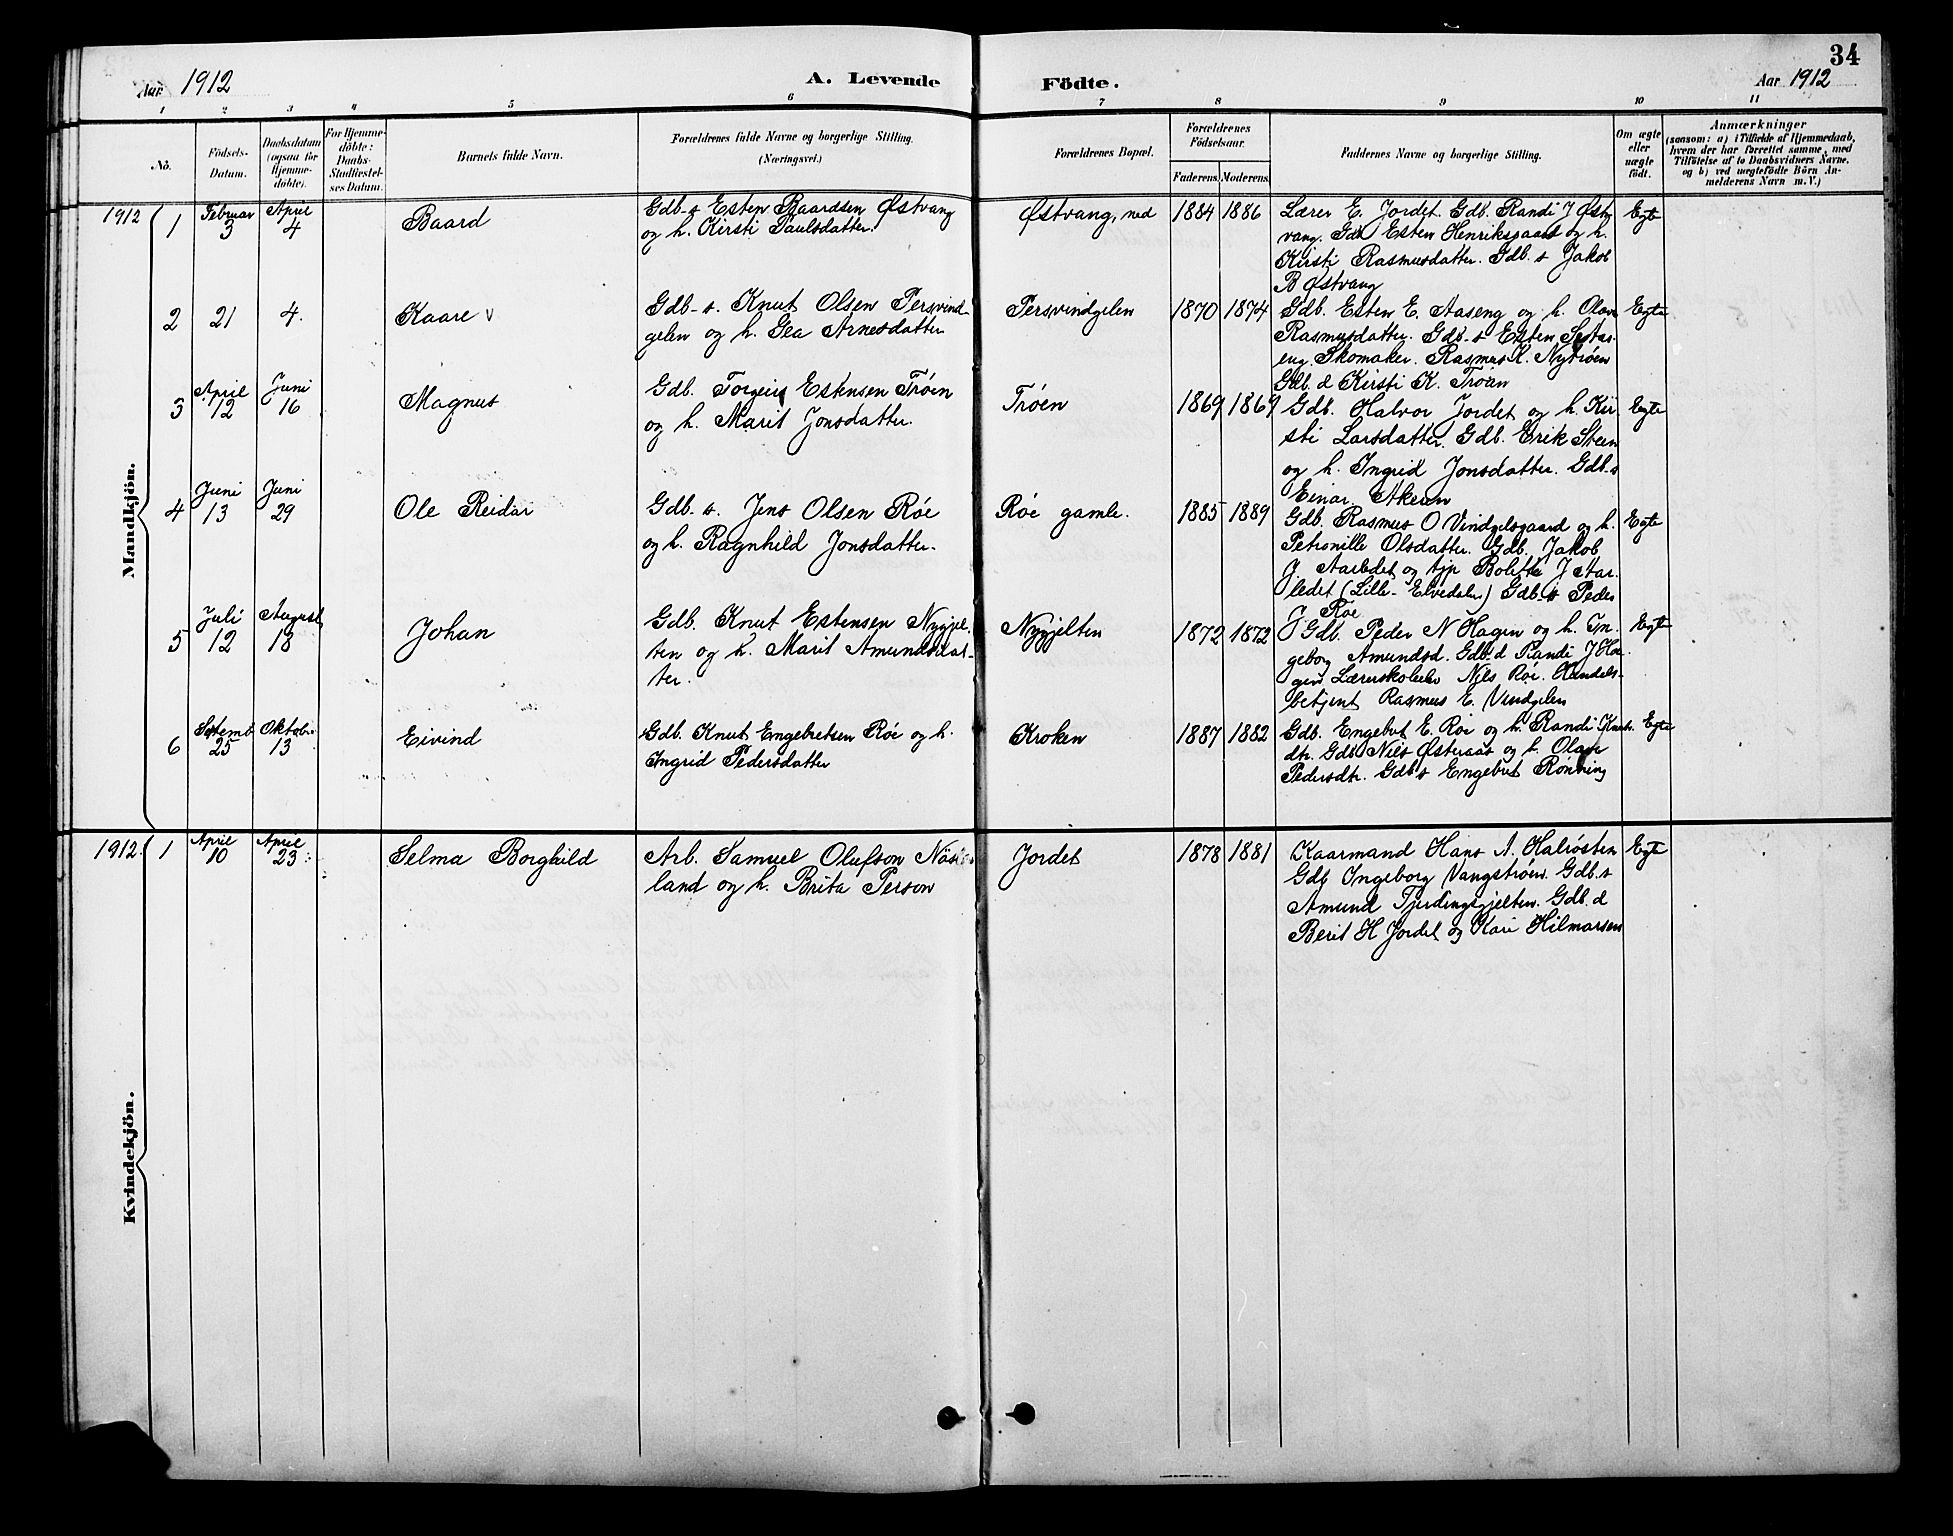 34
Aar 1912
A. Levende Födte.
Aar 1912
1 2 3 4 5 6 7 8 9 10 11
No.
Födsels-
Datum.
Daabsdatum
(ogsaa for
Hjemme-
döbte).
For Hjemme-
döbte:
Daabs-
Stadfæstel-
ses Datum.
Barnets fulde Navn.
Forældrenes fulde Navne og borgerlige Stilling.
(Næringsvei.)
Forældrenes Bopæl.
Forældrenes
Födselsaar.
Faderens. Moderens.
Faddernes Navne og borgerlige Stilling.
Om ægte
eller
uægte
födt.
Anmærkninger
(saasom: a) i Tilfælde af Hjemmedaab,
hvem der har forrettet samme, med
Tilföielse af to Daabsvidners Navne,
og b) ved uægtefödte Börn An-
melderens Navn m. V.)
Mandkjön.
1912
1
Februar
3
April
4
Baard
Gdb-s Esten Baardsen Østvang
og h. Kirsti Paulsdatter.
Østvang, ned
1884 1886
Lærer E. Jordet. Gdb. Randi J Øst
vang. Gdb Esten Henriksgaard og h.
Kirsti Rasmusdatter. Gdb. s Jakob
B Østvang
Egte
2
21
4.
Kaare v
Gdb-s. Knut Olsen Persvind-
gelen og h. Gea Arnesdatter
Persvindgelen
1870 1874
Gdb. Esten E. Aaseng og h. Olava
Rasmusdatter. Gdb-s Esten
Skomaker. Rasmus K. Nytröen
Gdb. d Kirsti K. Tröen
Egte
3
April
12
Juni
16
Magnus
Gdb. Torgeir Estensen Tröen
og h. Marit Jonsdatter.
Tröen
1869 1869
Gdb. Halvor Jordet og h. Kir
sti Larsdatter. Gdb. Erik Steen
og h. Ingrid Jonsdatter. Gdb.s
Einar Akeren
Egte
4
Juni
13
Juni
29
Ole Reidar
Gdb. s. Jens Olsen Røe
og h. Ragnhild Jonsdatter.
Røe gamle.
1885 1889
Gdb. Rasmus O Vindgelsgaard og h.
Petronille Olsdatter. Gdb. Jakob
J Aarledet og tjp Bolette J Aar.
ledet (Lille-Elvedalen) Gdb. s Peder
J Røe
Egte
5
Juli
12
August
18
Johan
Gdb. Knut Estensen Nygjel
ten og h. Marit Amundsdat-
ter.
Nygjelten
1872 1872
Gdb. Peder N Hagen og h. In.
geborg Amundsd. Gdb. d Randi J Ha.
gen Lærerskoleelev Nils Røe. Handels-
betjent Rasmus E. Vindgelen
Egte
6
Septemb
25
Oktober
13
Eivind
Gdb. Knut Engebretsen Røe og h.
Ingrid Pedersdatter
Kroken
1887 1882
Gdb. Engebret E. Røe og h. Randi Knuts.
dtr. Gdb Nils Østeraas og h. Olava
Pedersdtr. Gdb s Engebret Rønning
Egte
Kvindekjön.
1912.
1
April
10
April
23
Selma Borghild
Arb. Samuel Olufson Näs
land og h. Brita Person
Jordet
1878 1881
Kaarmand Hans A. Halrösten
Gdb Ingeborg Vangströen. Gdb. s
Amund Fjerdingsgjelten. Gdb. d
Berit H Jordet og Kari Hilmarsen
Egte